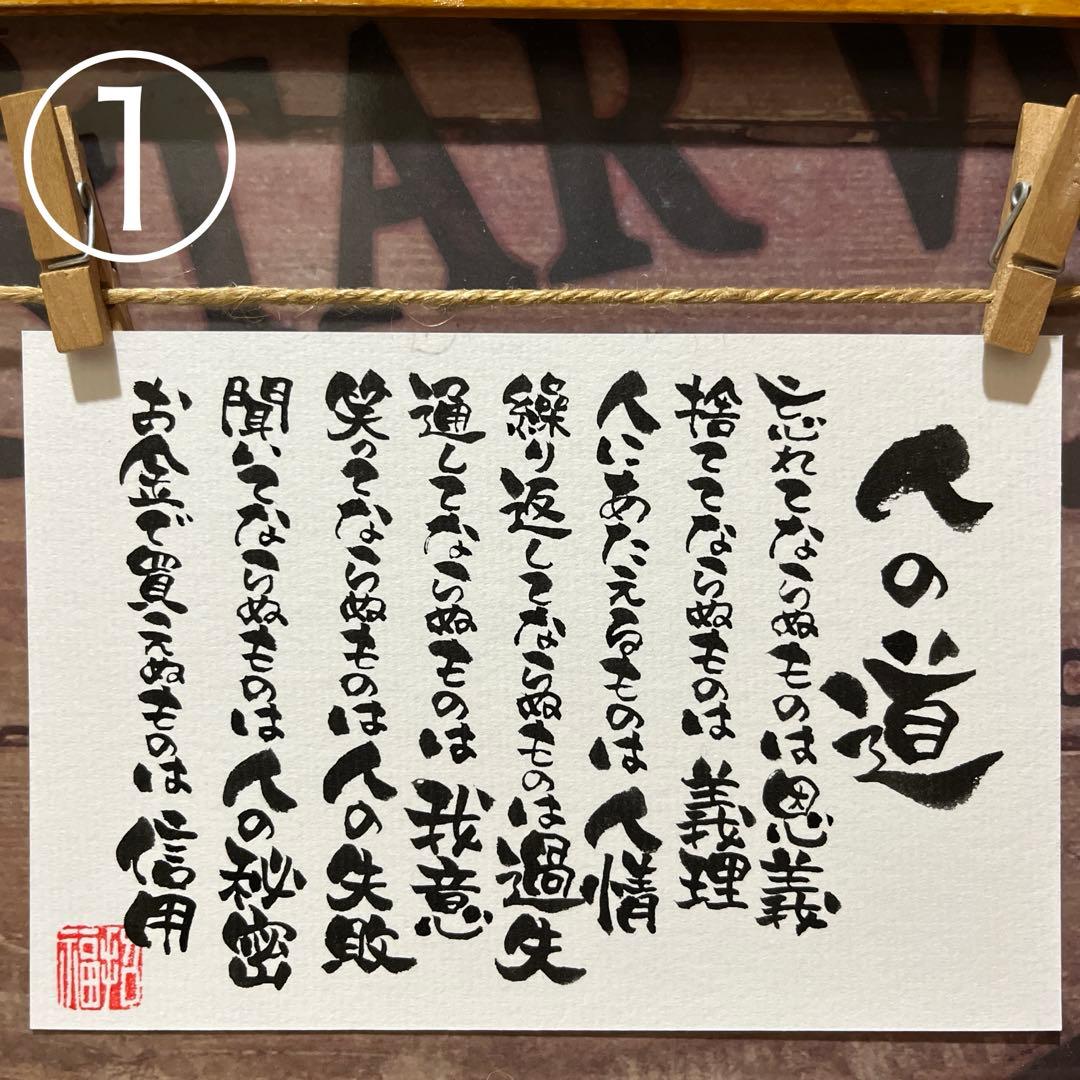 ①
STAR W
人の道
忘れてならぬものは恩義
捨ててならぬものは義理
人にあたえるものは人情
繰り返してならぬものは過失
通してならぬものは我意
笑ってならぬものは人の失敗
聞いてならぬものは人の秘密
お金で買えぬものは信用
招福